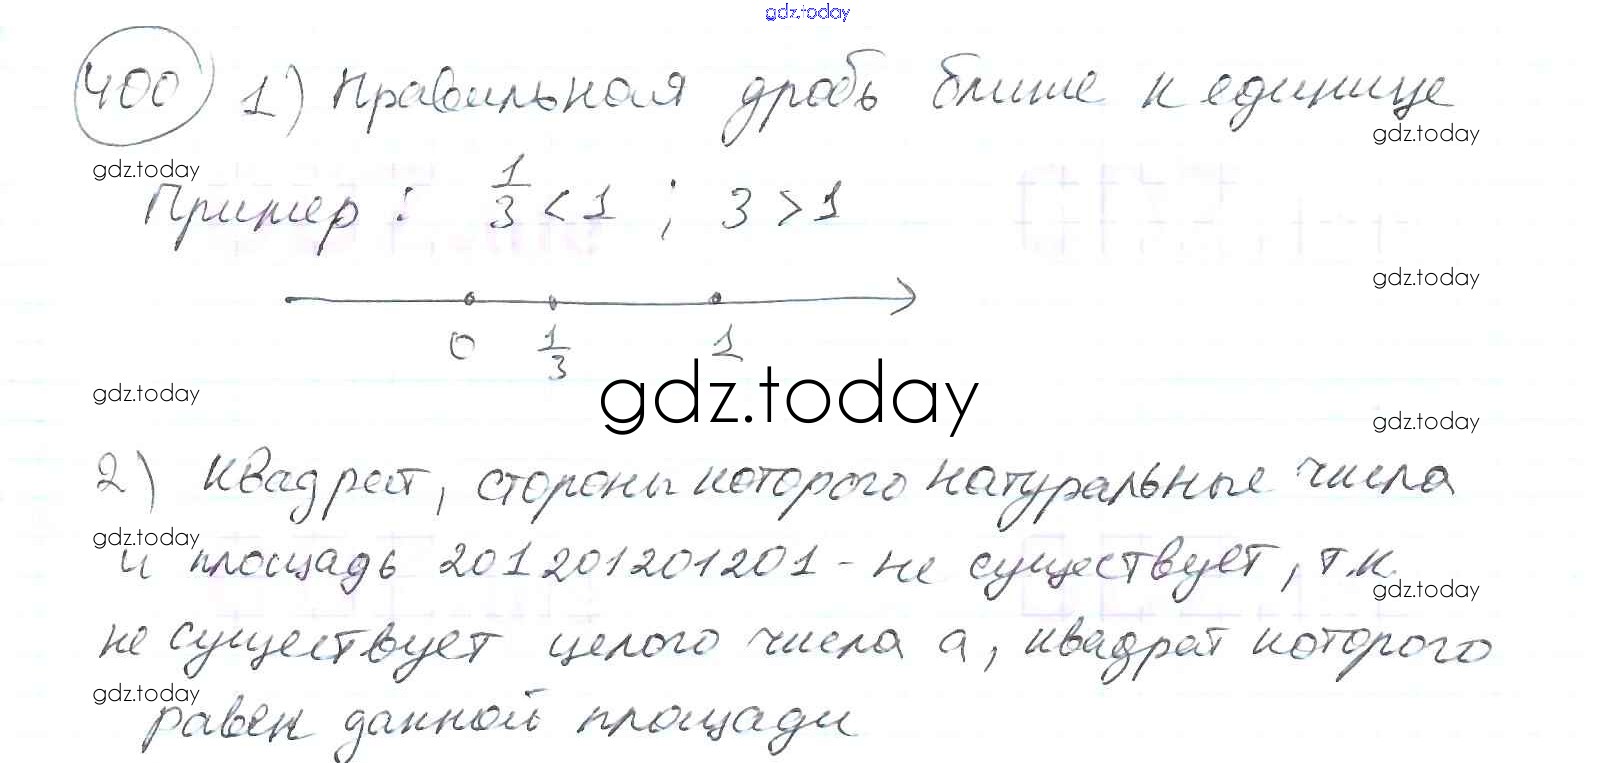 gdz.today
400 1) Правильная дробь ближе к единице
gdz.today
gdz.today
Пример: 1/3 < 1 ; 3 > 1
gdz.today
0 1/3 1
gdz.today
gdz.today
gdz.today
2) Квадрат, стороны которого натуральные числа
gdz.today
и площадь 201201201201 - не существует, т.к.
gdz.today
не существует целого числа а, квадрат которого
gdz.today
равен данной площади